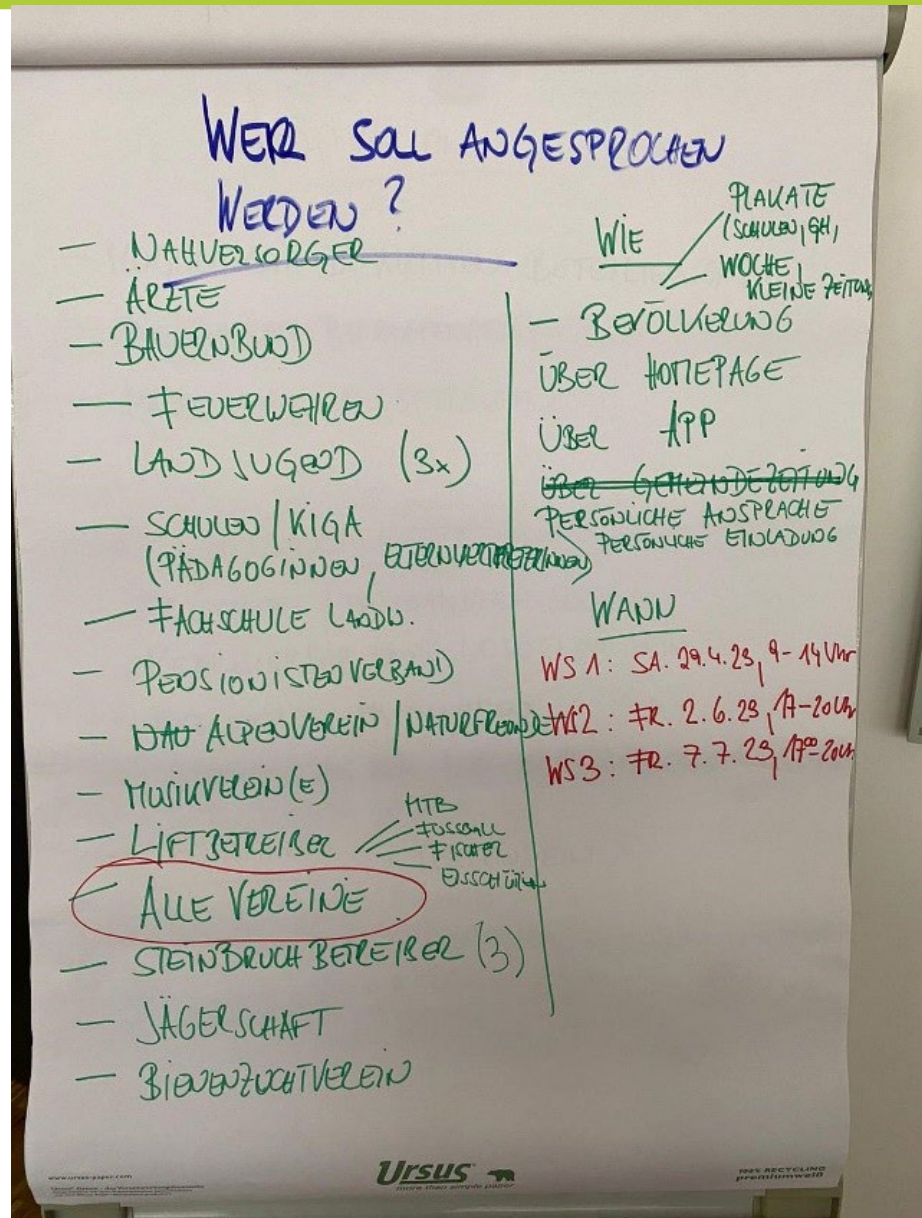 WER SOLL ANGESPROCHEN
WERDEN?
— NAHVERSORGER
— ÄRZTE
— BAUERNBUND
— FEUERWEHREN
— LANDJUGEND (3x)
— SCHULEN / KIGA
(PÄDAGOGINNEN, ELTERNVERTRETERINNEN)
— FACHSCHULE LANDW.
— PENSIONISTENVERBAND
— ALPENVEREIN / NATURFREUNDE
— MUSIKVEREIN(E)
— LIFTBETREIBER
MTB
FUSSBALL
FISCHER
EISSCHÜTZEN
— ALLE VEREINE
— STEINBRUCHBETREIBER (3)
— JÄGERSCHAFT
— BIENENZUCHTVEREIN
WIE
PLAKATE
(SCHULEN, GH,
WOCHE,
KLEINE ZEITUNG
— BEVÖLKERUNG
ÜBER HOMEPAGE
ÜBER APP
ÜBER GEMEINDEZEITUNG
PERSÖNLICHE ANSPRACHE
PERSÖNLICHE EINLADUNG
WANN
WS 1: SA. 29.4.23, 9-14 Uhr
WS2: FR. 2.6.23, 17-20 Uhr
WS3: FR. 7.7.23, 17⁰⁰-20 Uhr
www.ursus-paper.com
Ursus
more than simple paper
100% RECYCLING
premiumweiß